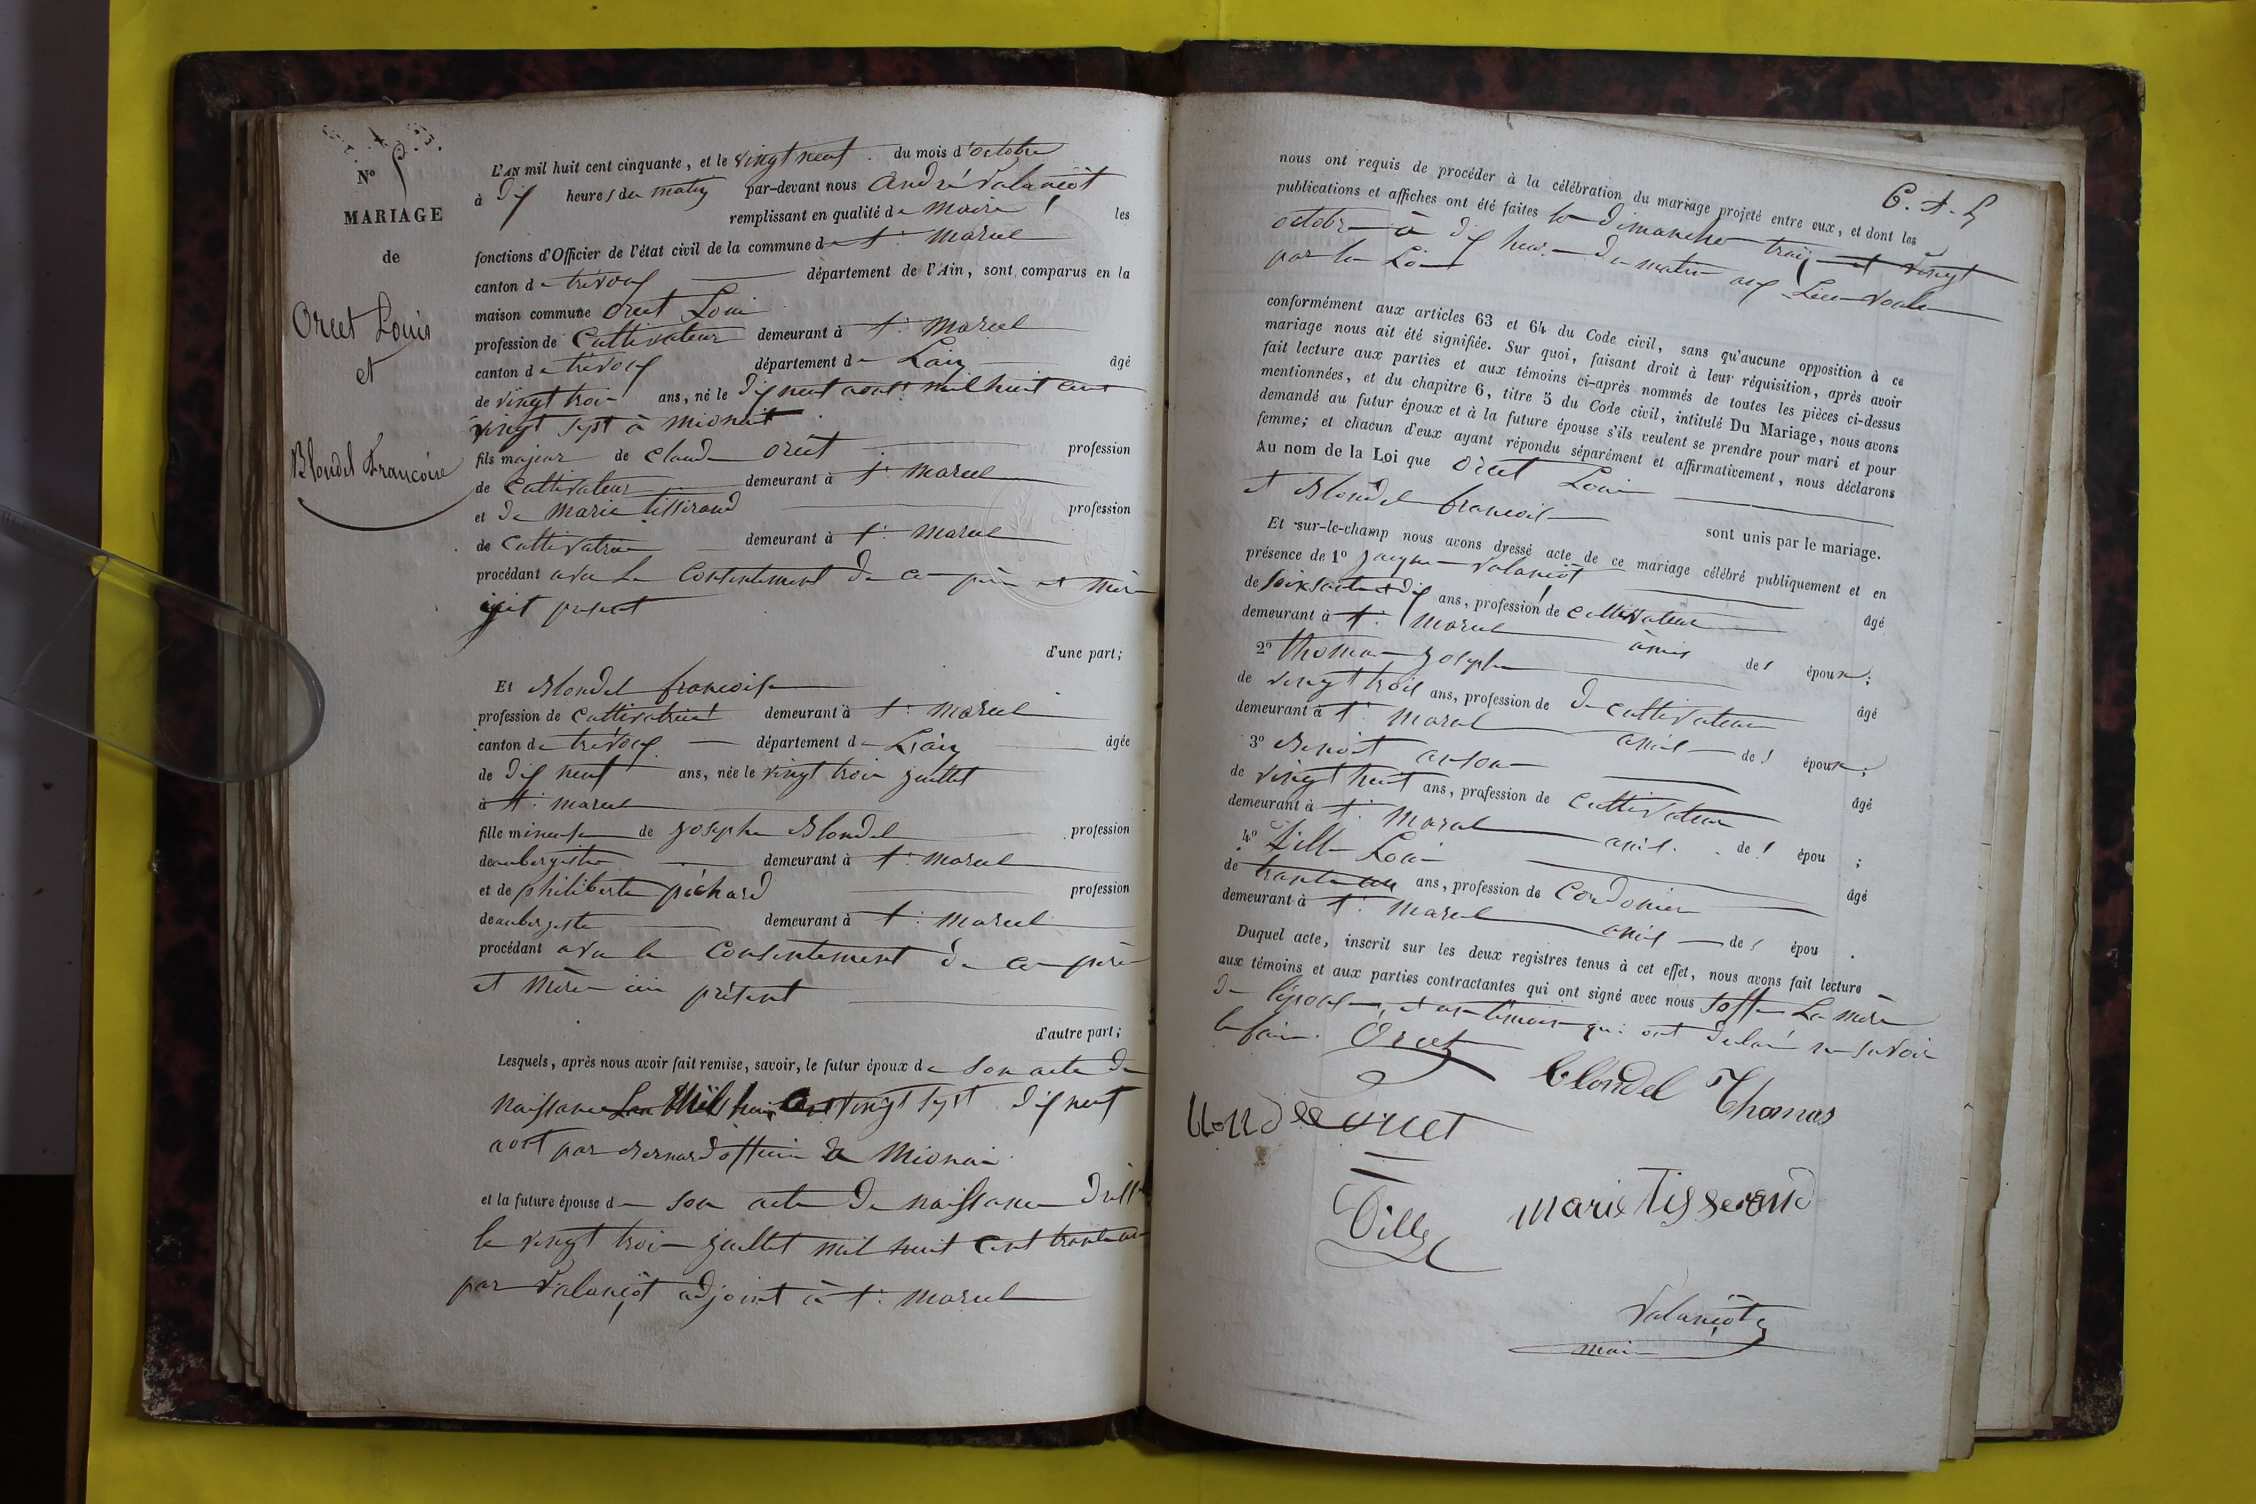 N° 5
MARIAGE
de
Orcet Louis
et
Blondel Francoise
L'AN mil huit cent cinquante, et le vingt neuf du mois d'octobre
à dix heures du matin par-devant nous André Valançot
remplissant en qualité de Maire les
fonctions d'Officier de l'état civil de la commune de St Marcel
canton de trévoux département de l'Ain, sont comparus en la
maison commune Orcet Loui
profession de Cultivateur demeurant à St Marcel
canton de trévoux département de Lain âgé
de vingt troi ans, né le dix neuf aout mil huit cent
vingt sept à Mionait
fils majeur de Claude Orcet profession
de Cultivateur demeurant à St Marcel
et de Marie tisserand profession
de Cultivatrice demeurant à St Marcel
procédant avec le Consentement de ce père et mère
present
d'une part;
Et Blondel francoise
profession de Cultivatrice demeurant à St Marcel
canton de trévoux département de Lain âgée
de dix neuf ans, née le vingt troi juillet
à St Marcel
fille mineure de Joseph Blondel profession
de aubergiste demeurant à St Marcel
et de philiberte péchard profession
de aubergiste demeurant à St Marcel
procédant avec le Consentement de ce père
et mère ici présent
d'autre part;
Lesquels, après nous avoir fait remise, savoir, le futur époux de son acte de
naissance Lan Mil huit Cent vingt sept dix neuf
aout par Bernard à Mionai
et la future épouse de son acte de naissance
le vingt troi juillet mil huit cent trante un
par Valançot adjoint à St Marcel
6. A. 5
nous ont requis de procéder à la célébration du mariage projeté entre eux, et dont les
publications et affiches ont été faites le dimanche traize et vingt
octobre à dix heure du matin aux Lieu
par la Loi
conformément aux articles 63 et 64 du Code civil, sans qu'aucune opposition à ce
mariage nous ait été signifiée. Sur quoi, faisant droit à leur réquisition, après avoir
fait lecture aux parties et aux témoins ci-après nommés de toutes les pièces ci-dessus
mentionnées, et du chapitre 6, titre 5 du Code civil, intitulé Du Mariage, nous avons
demandé au futur époux et à la future épouse s'ils veulent se prendre pour mari et pour
femme; et chacun d'eux ayant répondu séparément et affirmativement, nous déclarons
Au nom de la Loi que Orcet Loui
et Blondel francoise
sont unis par le mariage.
Et sur-le-champ nous avons dressé acte de ce mariage célébré publiquement et en
présence de 1° Jacque Valançot âgé
de soixante dix ans, profession de Cultivateur
demeurant à St Marcel ami des époux;
2° Thomas Joseph âgé
de vingt trois ans, profession de de cultivateur
demeurant à St Marcel ami des époux;
3° Benoit âgé
de vingt huit ans, profession de Cultivateur
demeurant à St Marcel ami des épou ;
4° Dille Loui âgé
de trante un ans, profession de Cordonier
demeurant à St Marcel ami des épou .
Duquel acte, inscrit sur les deux registres tenus à cet effet, nous avons fait lecture
aux témoins et aux parties contractantes qui ont signé avec nous La mère
de lépouse, et qui ont déclaré ne savoir
le faire. Orcet
Blondel Thomas
Blondel Orcet
Dille
Marie Tisserand
Valançot
maire